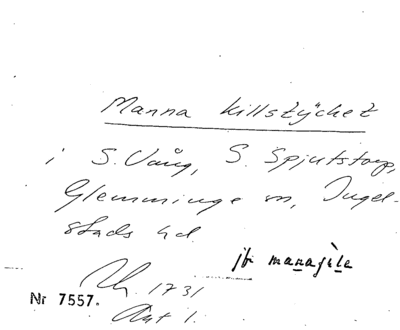 Manna killstÿchet
i S. Vång, S. Spjutstorp,
Glemminge sn, Ingel-
stads hd.
jfr managile
1731
Nr 7557.
Akt 1.